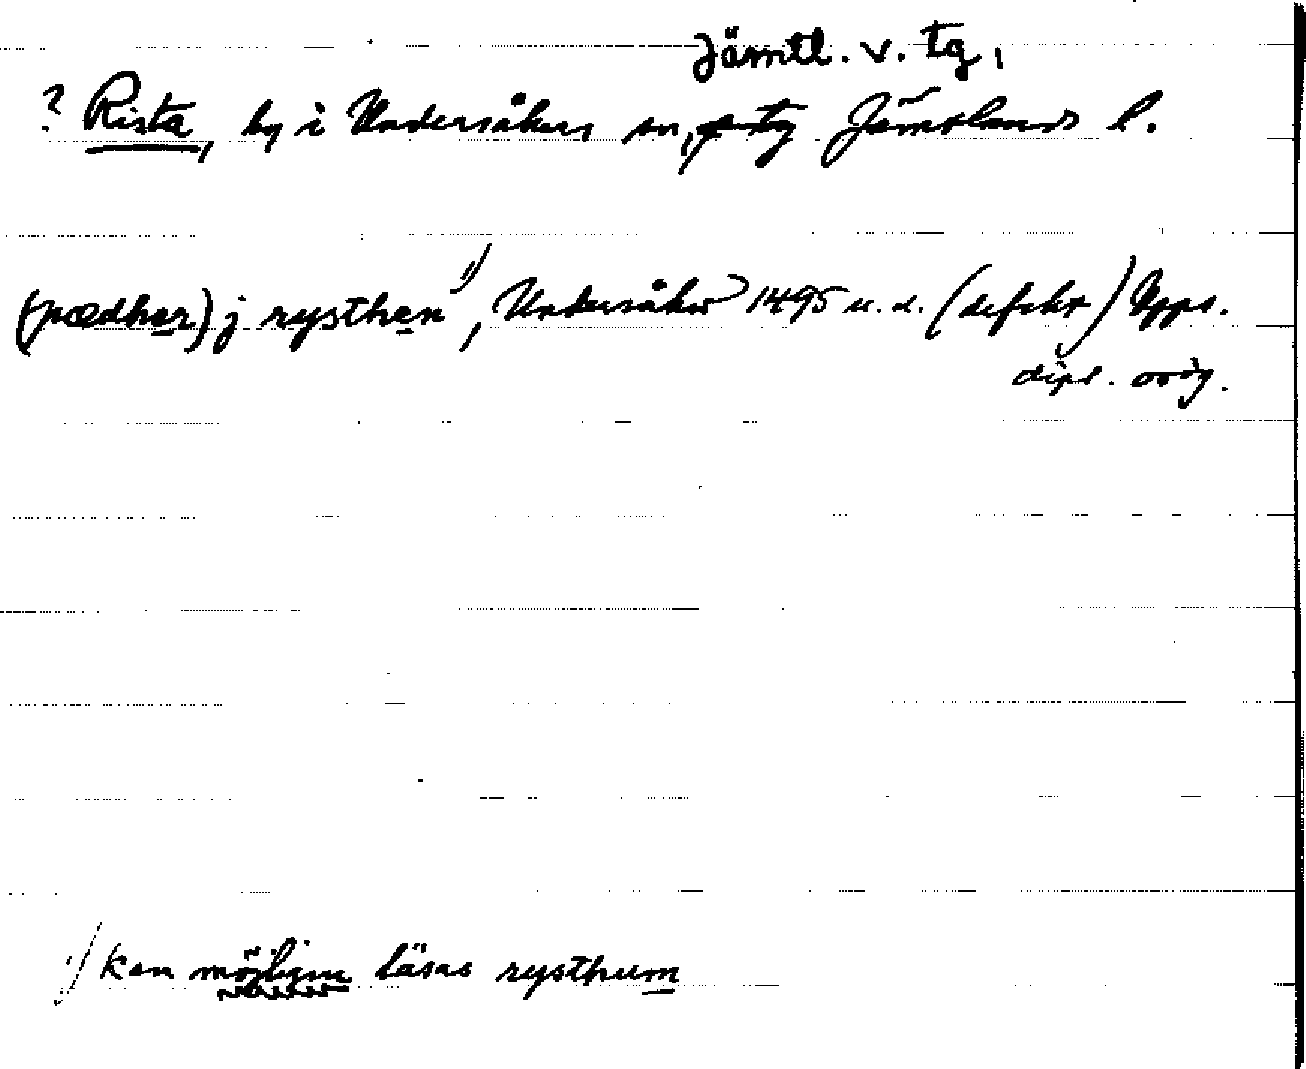 Jämtl. v. tg,
? Rista, by i Undersåkers sn, Jämtlands l.
(pædher) j rysthen 1), Undersåker 1495 u. d. (defekt) Upps.
dipl. orig.
1) kan möjligen läsas rysthum